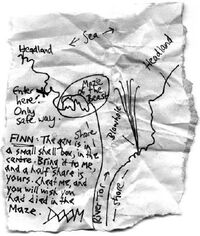 ← Sea →
Headland
Headland
Maze
of the
Beast
Enter
here.
Only
safe way
Blowhole
Share
River Tor →
← share →
FINN: The gem is in
a small shell box, in the
centre. Bring it to me,
and a half share is
yours. Cheat me, and
you will wish you
had died in the
Maze. DOOM